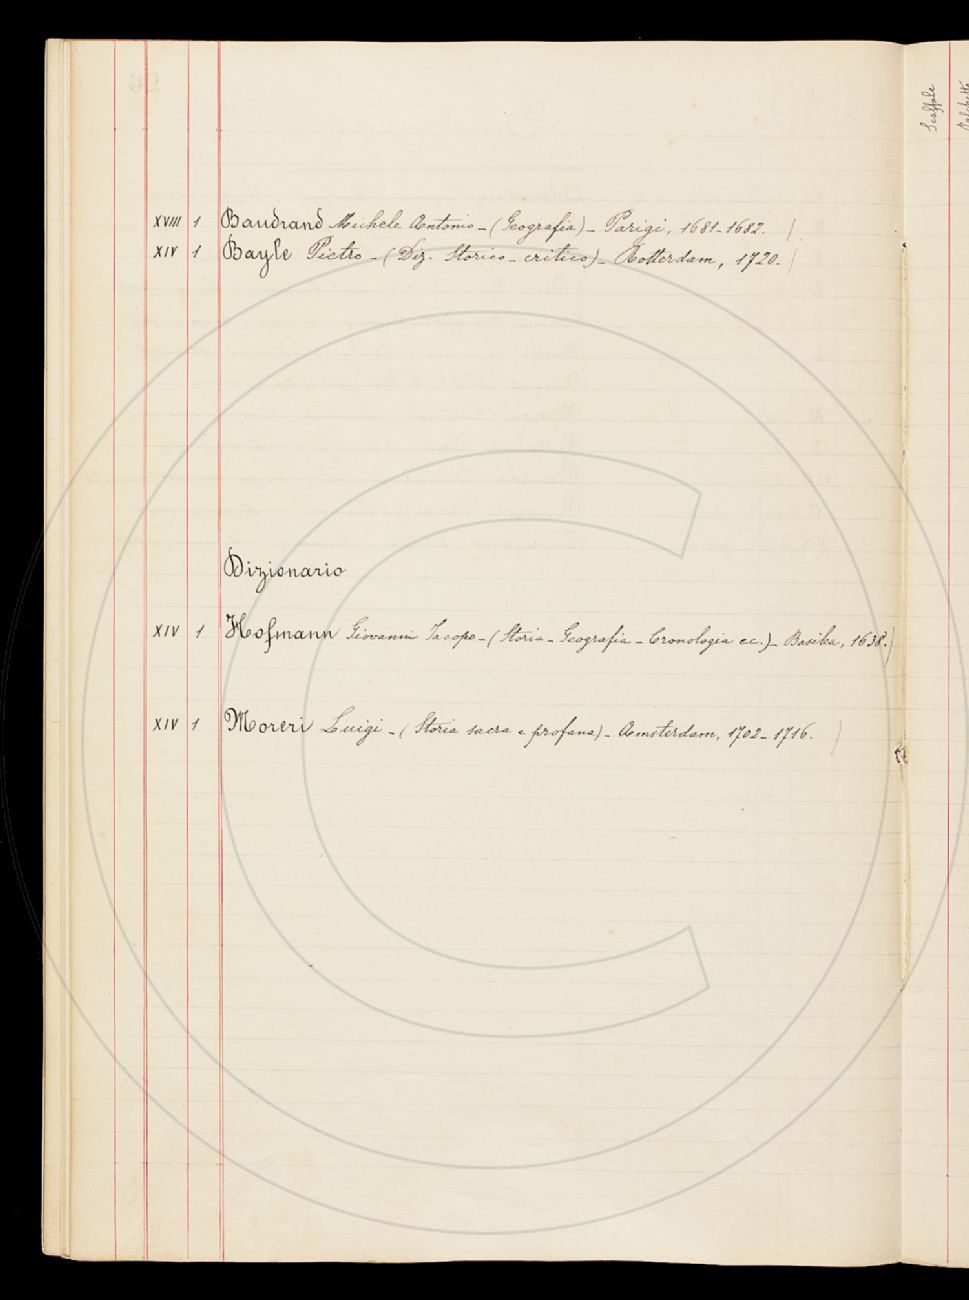 Scaffale
XVIII 1 Baudrand Michele Antonio - (Geografia) - Parigi, 1681-1682.
XIV 1 Bayle Pietro - (Diz. Storico - critico) - Rotterdam, 1720.
Dizionario
XIV 1 Hofmann Giovanni Jacopo - (Storia - Geografia - Cronologia ec.) - Basilea, 1638.
XIV 1 Moreri Luigi - (Storia sacra e profana) - Amsterdam, 1702-1716.